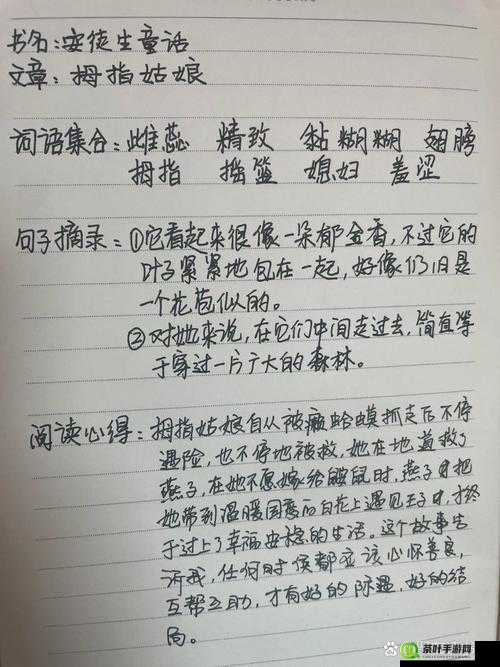 书名:安徒生童话
文章:拇指姑娘
词语集合:雌蕊 精致 黏糊糊 翅膀
拇指 摇篮 媳妇 羞涩
句子摘录:①它看起来很像一朵郁金香,不过它的
叶子紧紧地包在一起,好像仍旧是
一个花苞似的。
②对她来说,在它们中间走过去,简直等
于穿过一片广大的森林。
阅读心得:拇指姑娘自从被癞蛤蟆抓走后不停
遇险,也不停地被救,她在地道救了
燕子,在她不愿嫁给鼹鼠时,燕子把
她带到温暖国度的白花上遇见王子,才终
于过上了幸福安稳的生活。这个故事告
诉我,任何时候都应该心怀善良,
互帮互助,才有好的际遇,好的结
局。
茶叶手游网